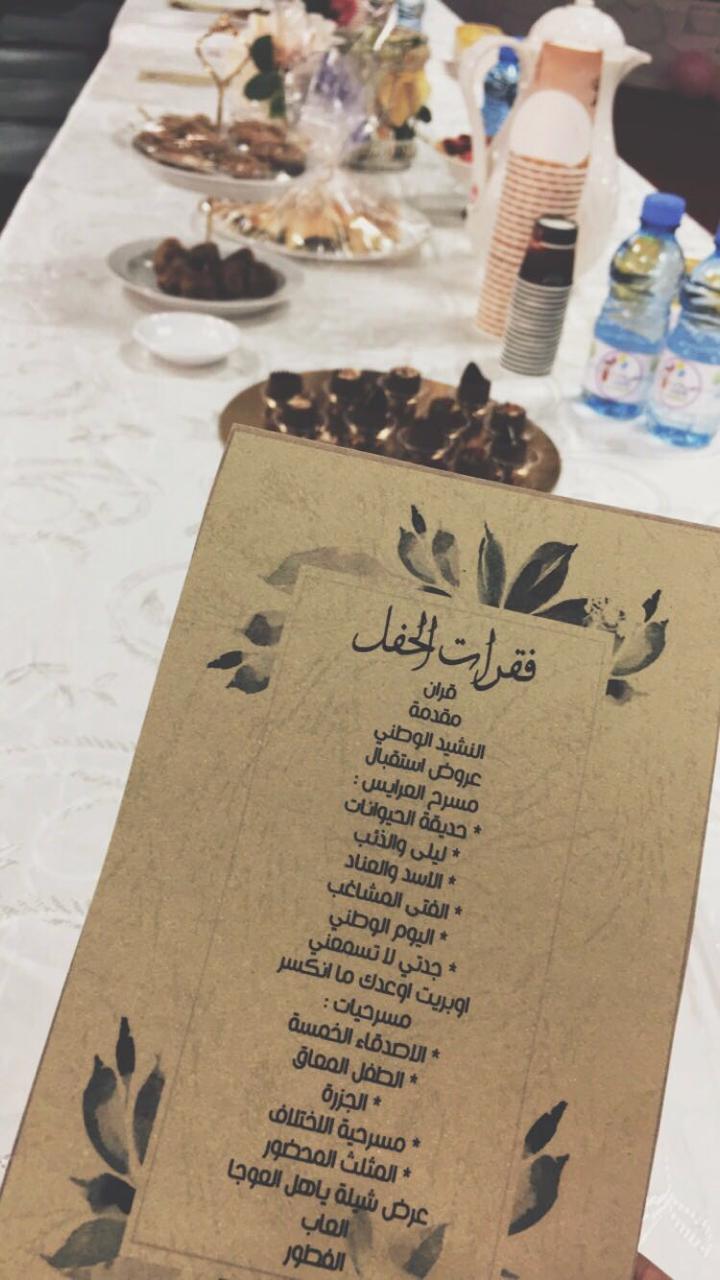 فقرات الحفل
قران
مقدمة
النشيد الوطني
عروض استقبال
مسرح العرايس :
* حديقة الحيوانات
* ليلى والذئب
* الاسد والعناد
* الفتى المشاغب
* اليوم الوطني
* جدتي لا تسمعني
اوبريت اوعدك ما انكسر
مسرحيات :
* الاصدقاء الخمسة
* الطفل المعاق
* الجزرة
* مسرحية الاختلاف
* المثلث المحضور
عرض شيلة ياهل العوجا
العاب
الفطور